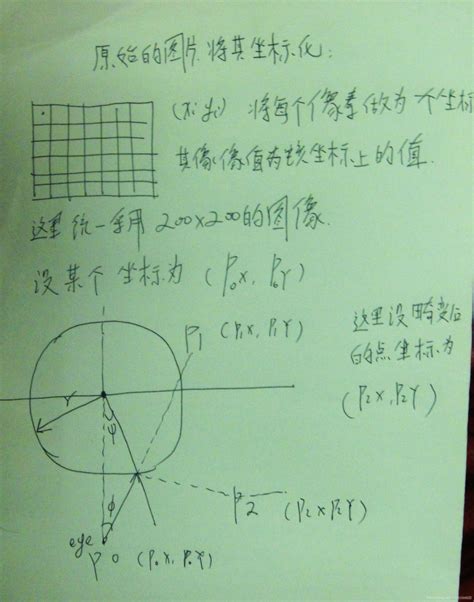 原始的图片将其坐标化:
将每个像素做为一个坐标
其像像值为该坐标上的值.
这里统一采用 200×200的图像.
设某个坐标为 (P₀X, P₀Y)
这里设畸变后
的点坐标为
(P₂X, P₂Y)
P₁ (P₁X, P₁Y)
r
ψ
φ
P2 (P₂X P₂Y)
eye
P0 (P₀X, P₀Y)